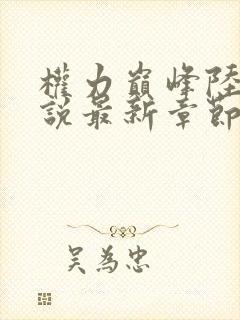 權力巔峰陸
說最新章節
吴為忠